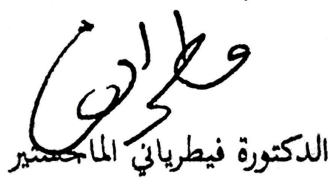 الدكتورة فيطرياني الماجستير